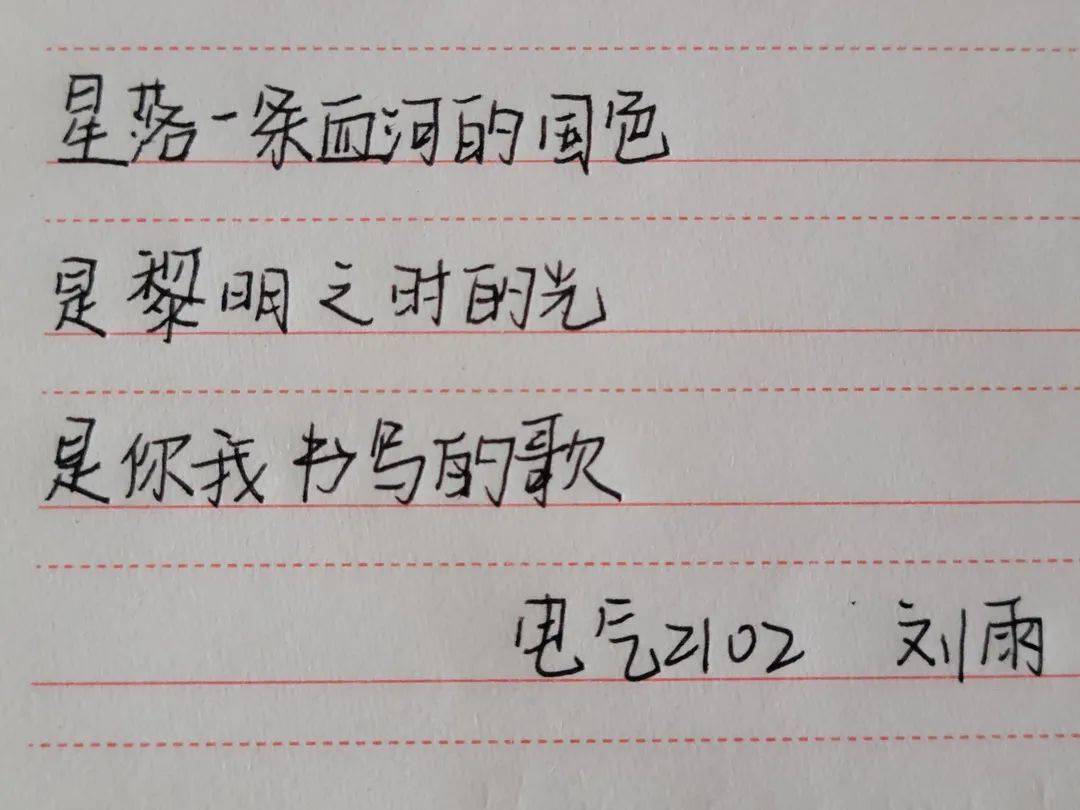 星落一条血河的国色
是黎明之时的光
是你我书写的歌
电气2102 刘雨